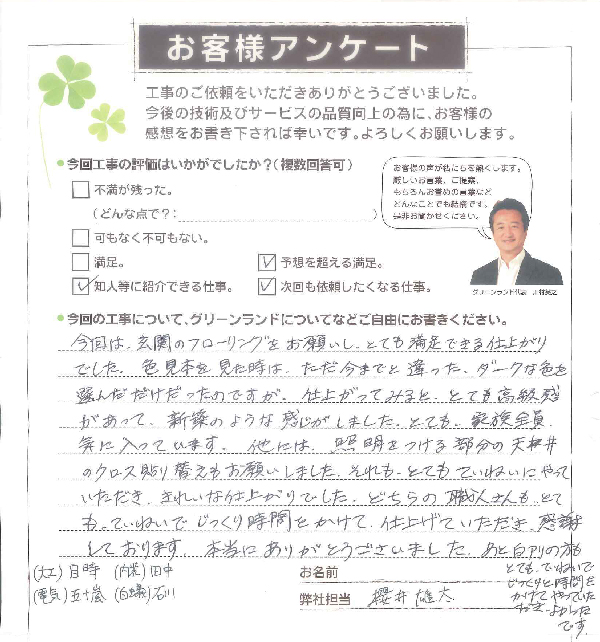 お客様アンケート
工事のご依頼をいただきありがとうございました。
今後の技術及びサービスの品質向上の為に、お客様の
感想をお書き下されば幸いです。よろしくお願いします。
今回工事の評価はいかがでしたか?(複数回答可)
不満が残った。
(どんな点で?: )
可もなく不可もない。
満足。
予想を超える満足。
知人等に紹介できる仕事。
次回も依頼したくなる仕事。
お客様の声が私たちを強くします。
厳しいお言葉、ご提案、
もちろんお褒めの言葉など
どんなことでも結構です。
是非お聞かせください。
グリーンランド代表
今回の工事について、グリーンランドについてなどご自由にお書きください。
今回は、玄関のフローリングをお願いし、とても満足できる仕上がり
でした。色見本を見た時は、ただ今までと違った、ダークな色を
選んだだけだったのですが、仕上がってみると、とても高級感
があって、新築のような感じがしました。とても、家族全員、
気に入っています。他には、照明をつける部分の天井
のクロス貼り替えもお願いしました。それも、とてもていねいにやって
いただき、きれいな仕上がりでした。どちらの職人さんも、とて
も、ていねいで じっくり時間をかけて、仕上げていただき、感謝
しております。本当にありがとうございました。あと白アリの方も
とても、ていねいで
じっくりと時間を
かけてやっていた
だき よかった
です。
(大工)日時 (内装)田中
(電気)五十嵐 (白蟻)石川
お名前
弊社担当 櫻井雄大